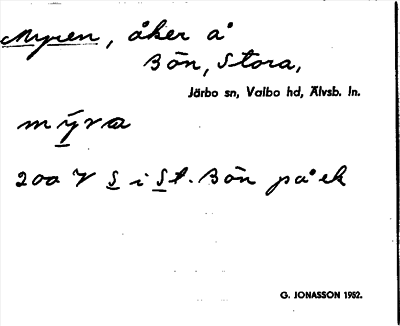 Myren, åker å
Bön, Stora,
Järbo sn, Valbo hd, Älvsb. ln.
mýra
200 V S i St. Bön på ek
G. JONASSON 1952.